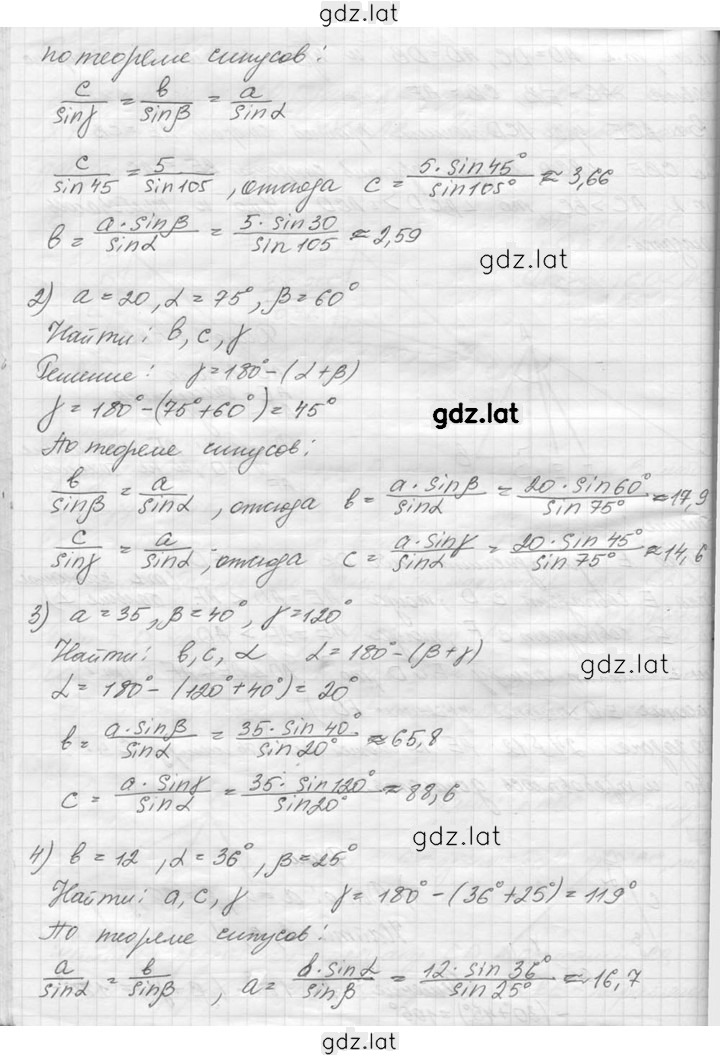 gdz.lat
по теореме синусов:
c/sinγ = b/sinβ = a/sinα
c/sin45 = 5/sin105, отсюда c = 5·sin45°/sin105° ≈ 3,66
b = a·sinβ/sinα = 5·sin30/sin105 ≈ 2,59
gdz.lat
2) a = 20, α = 75°, β = 60°
Найти: b, c, γ
Решение: γ = 180° - (α + β)
γ = 180° - (75° + 60°) = 45°
gdz.lat
По теореме синусов:
b/sinβ = a/sinα, отсюда b = a·sinβ/sinα = 20·sin60°/sin75° ≈ 17,9
c/sinγ = a/sinα; отсюда c = a·sinγ/sinα = 20·sin45°/sin75° ≈ 14,6
3) a = 35, β = 40°, γ = 120°
Найти: b, c, α α = 180° - (β + γ)
gdz.lat
α = 180° - (120° + 40°) = 20°
b = a·sinβ/sinα = 35·sin40°/sin20° ≈ 65,8
c = a·sinγ/sinα = 35·sin120°/sin20° ≈ 88,6
gdz.lat
4) b = 12, α = 36°, β = 25°
Найти: a, c, γ γ = 180° - (36° + 25°) = 119°
По теореме синусов:
a/sinα = b/sinβ, a = b·sinα/sinβ = 12·sin36°/sin25° ≈ 16,7
gdz.lat